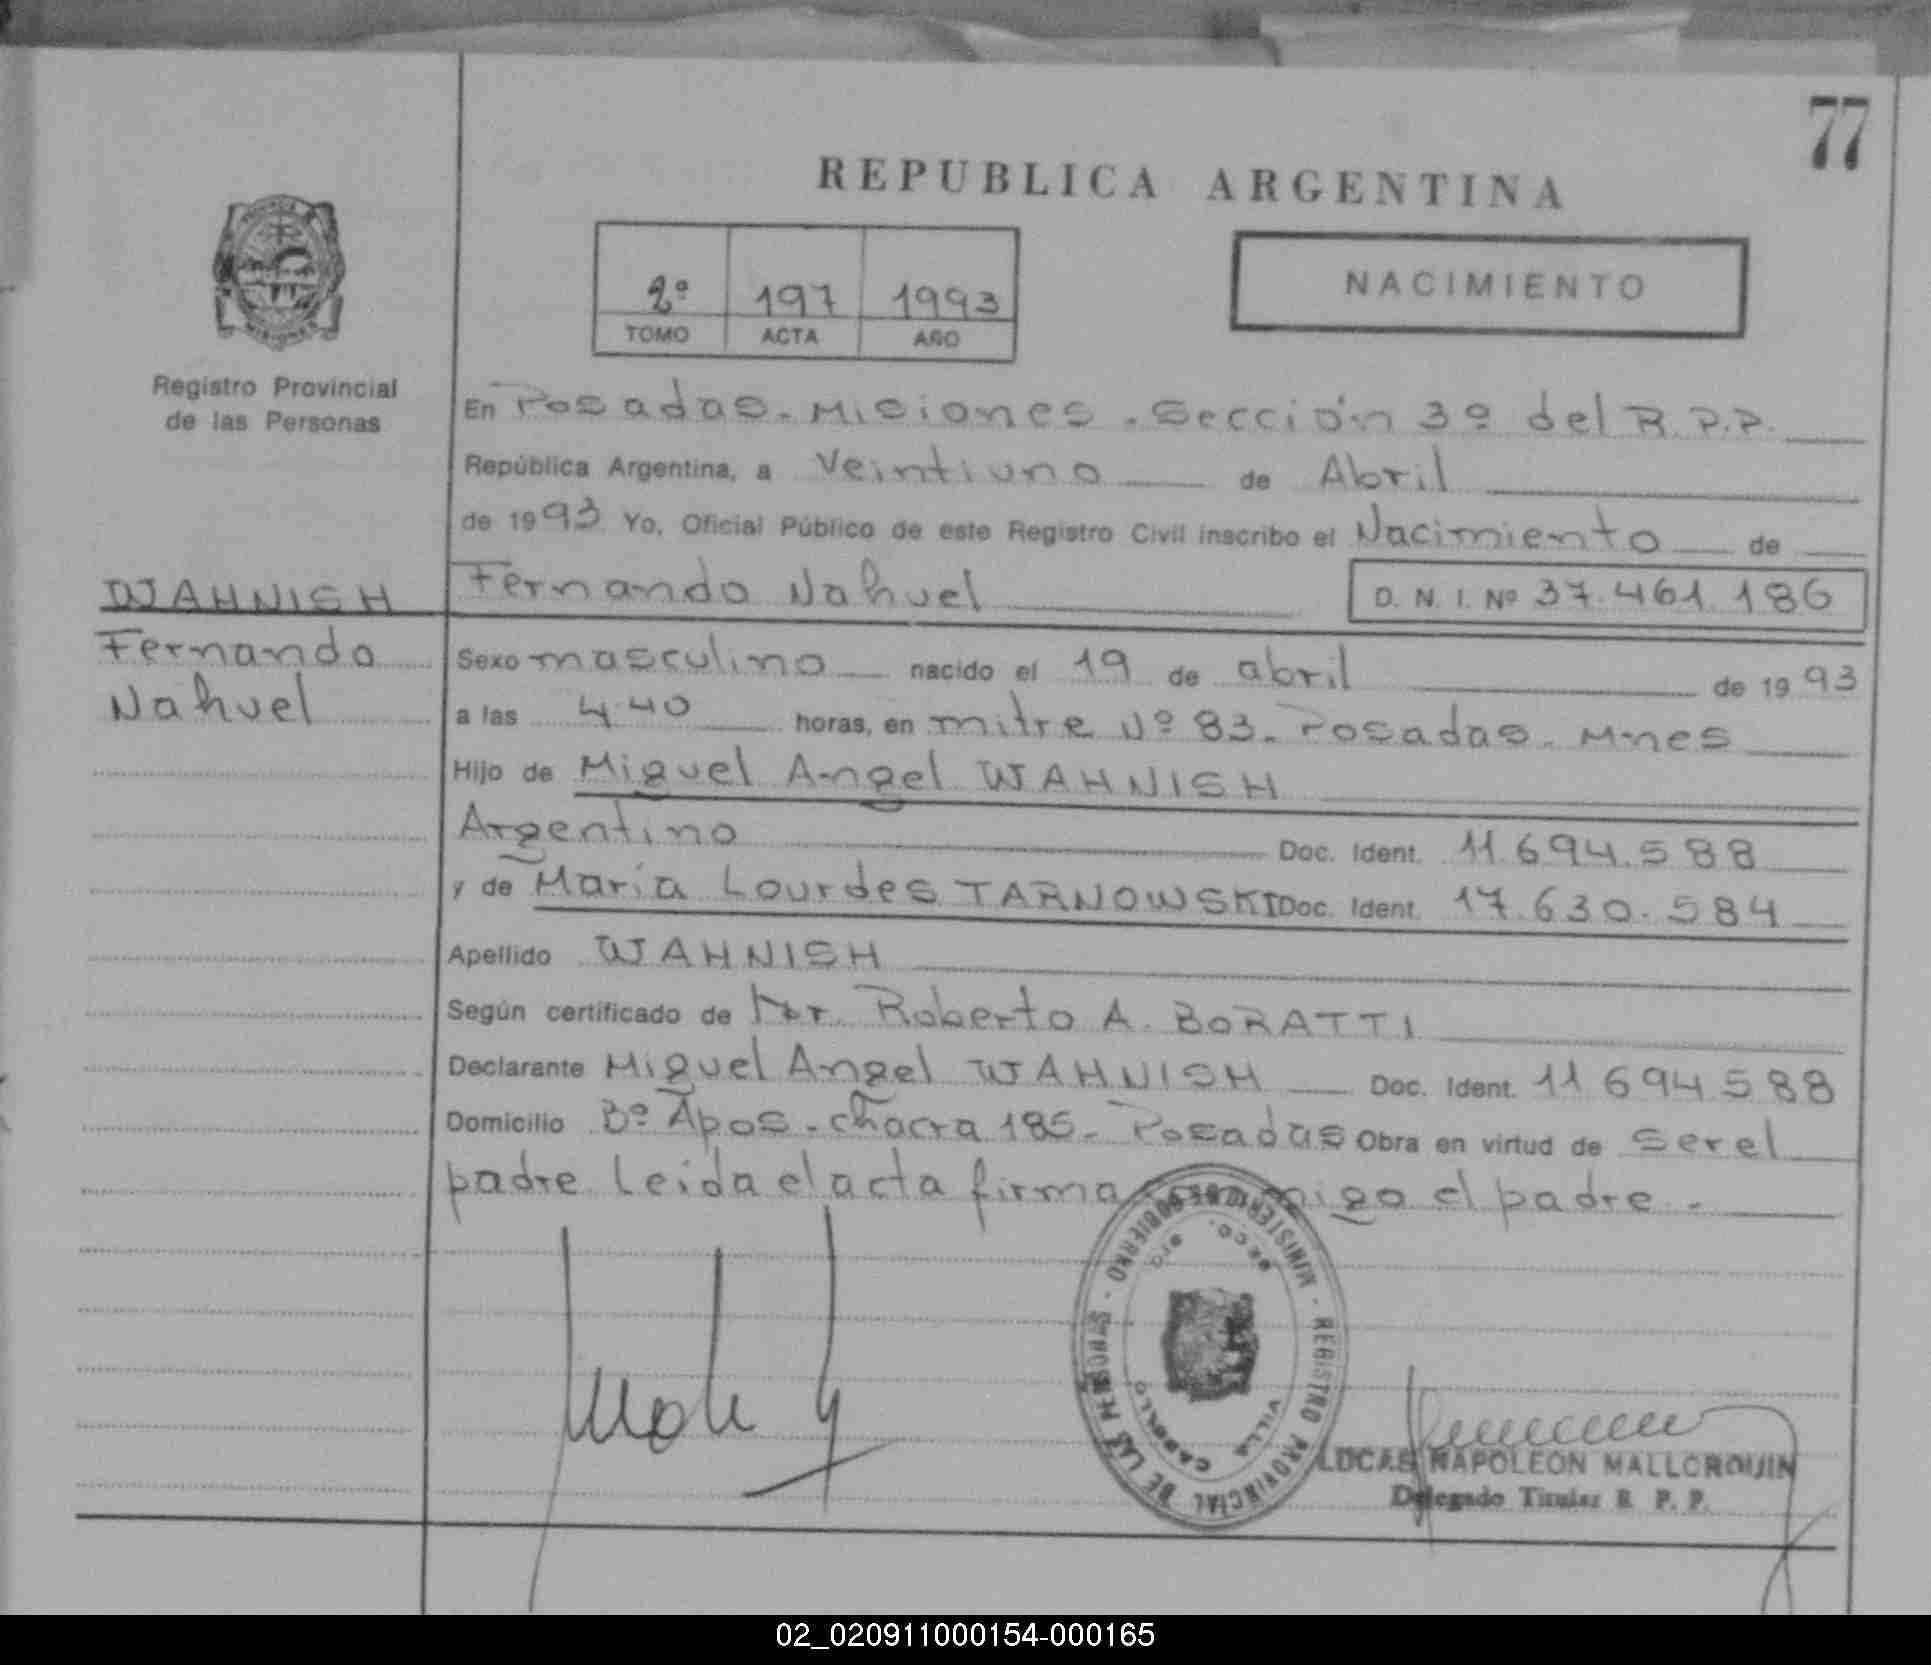 77
REPUBLICA ARGENTINA
2º 197 1993
TOMO ACTA AÑO
NACIMIENTO
Registro Provincial
de las Personas
En Posadas - Misiones - Sección 3º del R.P.P.
República Argentina, a Veintiuno de Abril
de 1993 Yo, Oficial Público de este Registro Civil inscribo el Nacimiento de
WAHNISH
Fernando
Nahuel
Fernando Nahuel D. N. I. Nº 37.461.186
Sexo masculino nacido el 19 de abril de 1993
a las 4.40 horas, en mitre Nº 83 - Posadas - Mnes
Hijo de Miguel Angel WAHNISH
Argentino Doc. Ident. 11.694.588
y de María Lourdes TARNOWSKI Doc. Ident. 17.630.584
Apellido WAHNISH
Según certificado de Roberto A. BORATTI
Declarante Miguel Angel WAHNISH Doc. Ident. 11.694.588
Domicilio Bº Apos - chacra 185 - Posadas Obra en virtud de ser el
padre Leida el acta firma conmigo el padre -
MINISTERIO DE GOBIERNO - REGISTRO PROVINCIAL DE LAS PERSONAS
VILLA CABELLO
LUCAS NAPOLEON MALLORQUIN
Delegado Titular R. P. P.
02_020911000154-000165